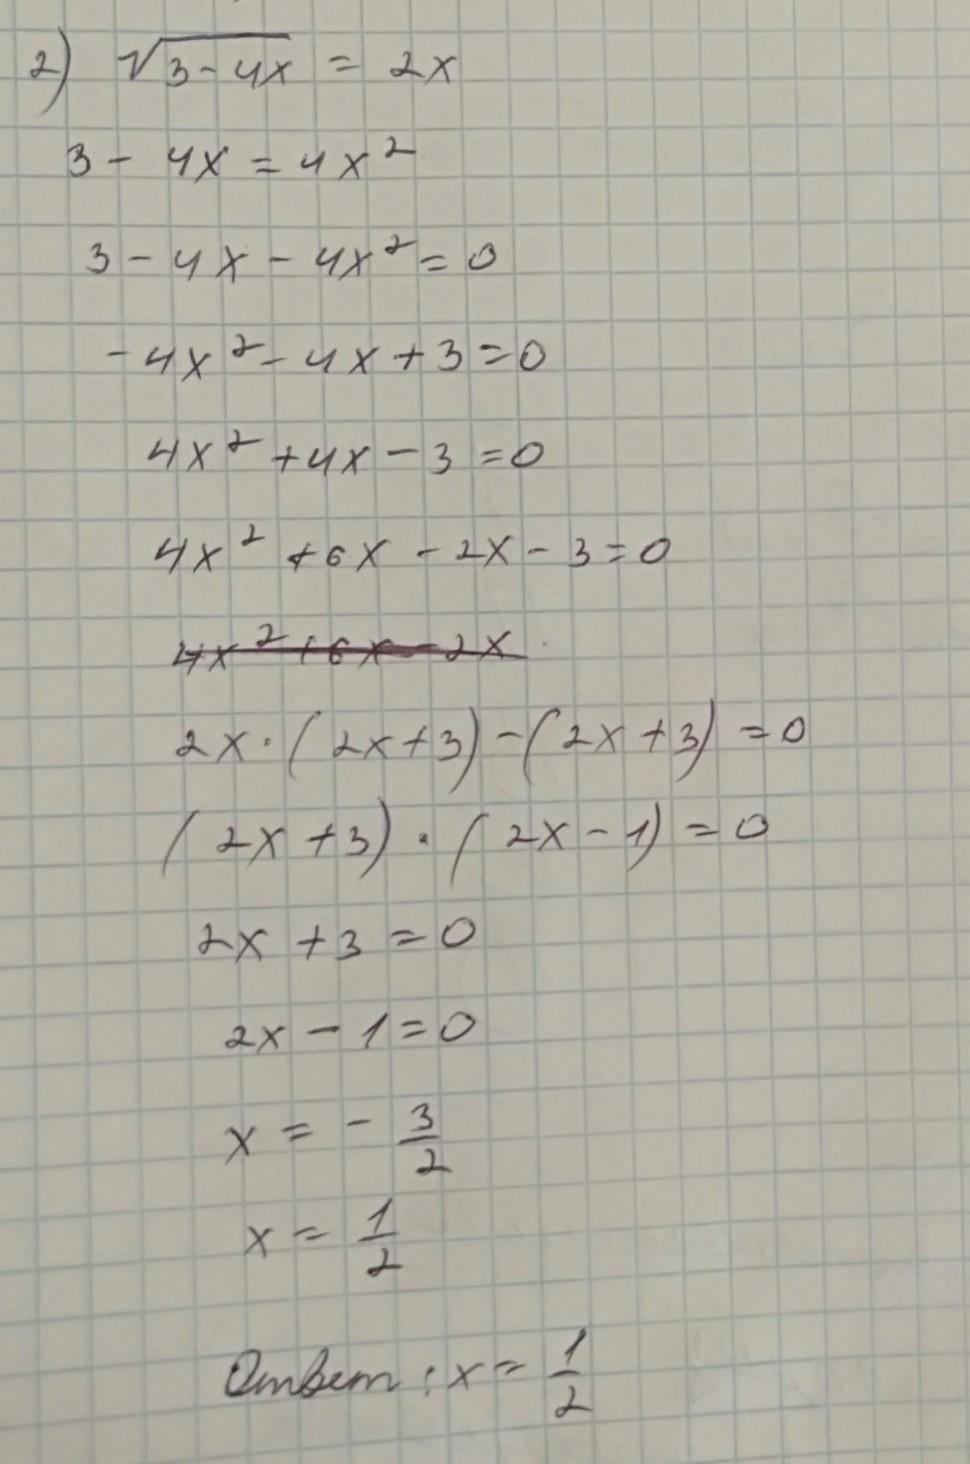 2) √(3 - 4x) = 2x
3 - 4x = 4x²
3 - 4x - 4x² = 0
-4x² - 4x + 3 = 0
4x² + 4x - 3 = 0
4x² + 6x - 2x - 3 = 0
4x² + 6x - 2x
2x · (2x + 3) - (2x + 3) = 0
(2x + 3) · (2x - 1) = 0
2x + 3 = 0
2x - 1 = 0
x = - 3/2
x = 1/2
Ответ: x = 1/2